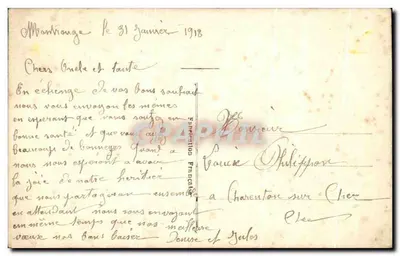 Montrouge le 31 Janvier 1918
Chers Oncle et tante
En échange de vos bons souhait
nous vous envoyon les mêmes
en esperant que vous soyez en
bonne santé et que vous
beaucoup de Quand a
nous nous esperont avoir
la joie de notre heritier
que nous partageron ensemble
en attendant nous vous envoyont
en même temps que nos meilleurs
vœux nos bons baiser
Denise et Jules
Fabrication Française
Monsieur
Philippon
a Charenton sur Cher
Cher
CPARAMA